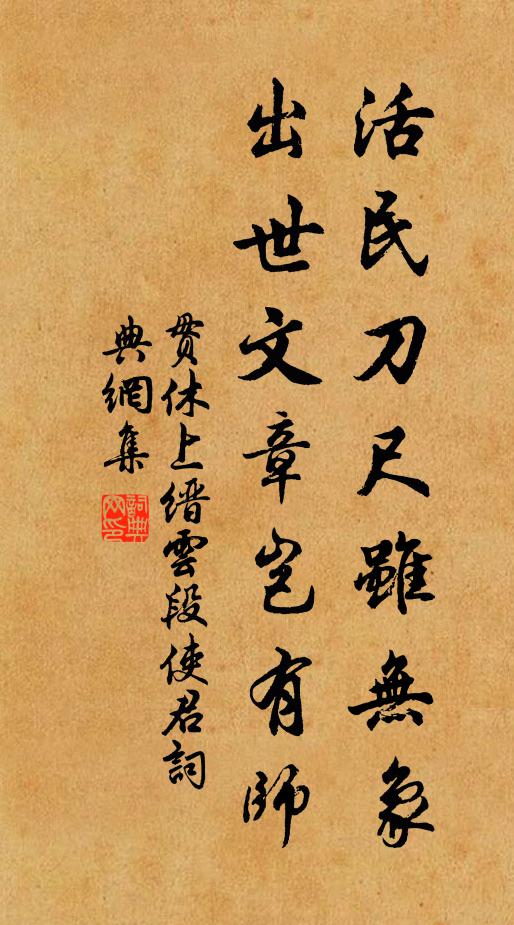 活民刀尺雖無象
出世文章豈有師
貫休上縉雲段使君詞
典網集
詞典
網印